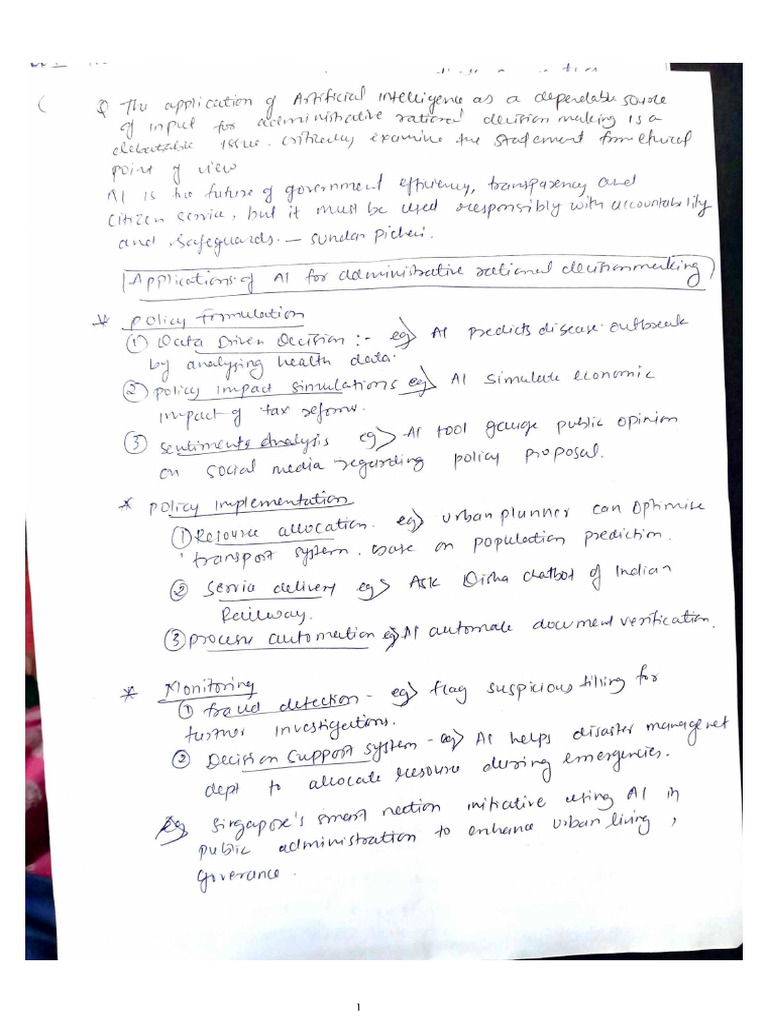 Q The application of Artificial intelligence as a dependable source
of input for administrative rational decision making is a
debatable issue. critically examine the statement from ethical
point of view
AI is the future of government efficiency, transparency and
citizen service, but it must be used responsibly with accountability
and safeguards. — sundar pichei.
Applications of AI for administrative rational decisionmaking
* Policy formulation
① Data Driven Decision :- eg> AI predicts disease outbreak
by analysing health data.
② policy impact simulations eg> AI simulate economic
impact of tax reforms.
③ sentiments analysis eg> AI tool gauge public opinion
on social media regarding policy proposal.
* Policy implementation
① Resource allocation. eg> urban planner can optimise
transport system. base on population prediction.
② Servie delivery eg> Ask Disha chatbot of Indian
Railway.
③ process automation eg> AI automate document verification.
* Monitoring
① fraud detection - eg> flag suspicious filling for
further investigations.
② Decision support system - eg> AI helps disaster
dept to allocate resource during emergencies.
eg singapore's smart nection initiative using AI in
public administration to enhance urban living,
goverance.
1